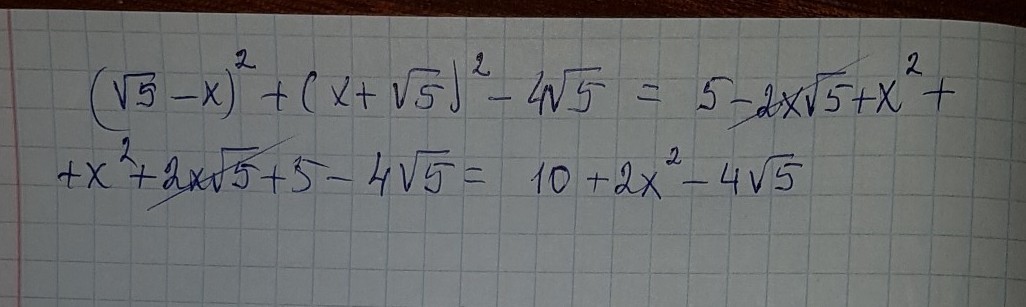 (√5 − x)² + (x + √5)² − 4√5 = 5 − 2x√5 + x² +
+ x² + 2x√5 + 5 − 4√5 = 10 + 2x² − 4√5